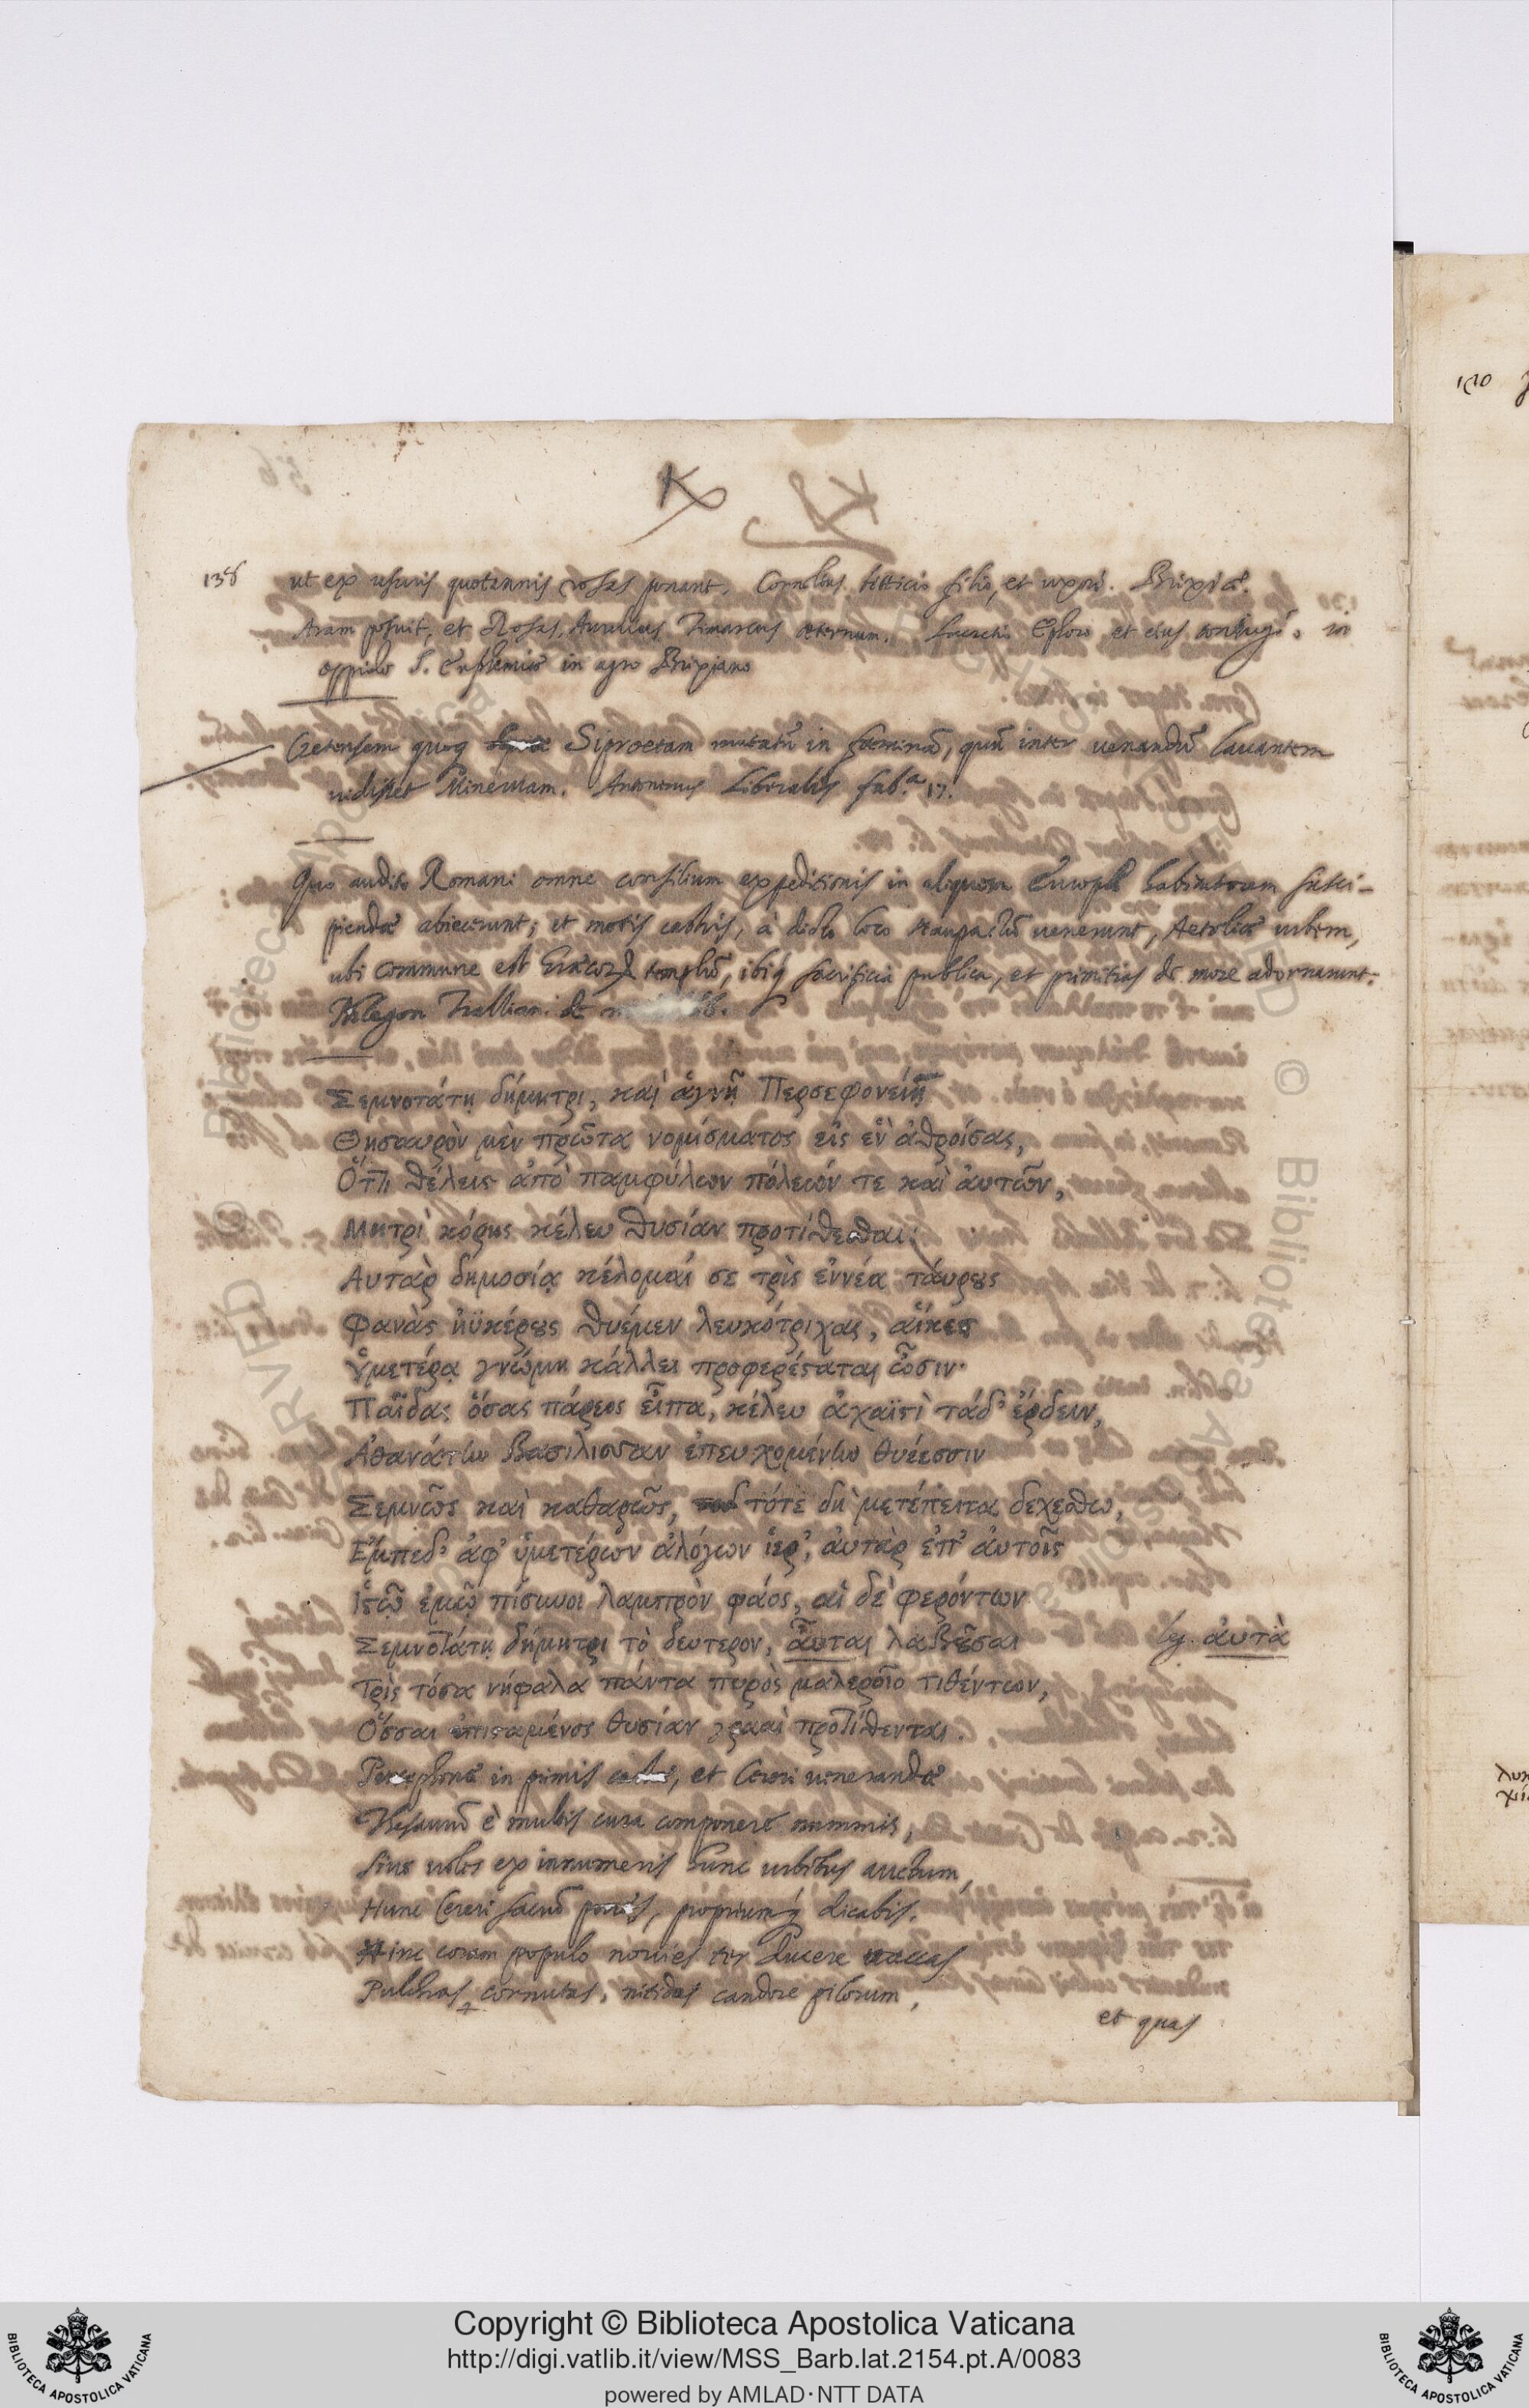 138 ut ex usuris quotannis rosas ponant, Cornelius filio, et uxori. Brixiæ.
Aram posuit, et Rosas, Aurelius Timarcus æternum. et eius coniugi. in
oppido S. Eufhemiæ in agro Brixiano
Cretensem quoq Siproetam mutatū in fæminā, quū inter uenandū lauantem
uidisset Mineruam. Antoninus Liberalis fab.ª 17.
Quo audito Romani omne consilium expeditionis in aliquem Europæ habitatorum susci-
piendæ abiecerunt; et motis castris, à dicto loco Naupactū uenerunt, Aetoliæ urbem,
ubi commune est templū, ibiq sacrificia publica, et primitias de more adornarunt.
Phlegon Trallian. de
Σεμνοτάτῃ δήμητρι, καὶ ἁγνῇ Περσεφονείῃ
Θησαυρὸν μὲν πρῶτα νομίσματος εἰς ἓν ἀθροίσας,
Ὅττι θέλεις ἀπὸ παμφύλων πόλεών τε καὶ αὐτῶν,
Μητρὶ κόρης κέλευ θυσίαν προτίθεσθαι.
Αυτὰρ δημοσίᾳ κέλομαί σε τρὶς ἐννέα ταύρους
Φανὰς ἠϋκέρους θυέμεν λευκότριχας, αἵκεν
Ὑμετέρᾳ γνώμῃ κάλλει προφερέσταται ὦσιν·
Παῖδας ὅσας πάρος εἶπα, κέλευ ἀχαϊστὶ τάδ' ἔρδειν,
Ἀθανάτων βασίλισσαν ἐπευχομένω θυέεσσιν
Σεμνῶς καὶ καθαρῶς, τότε δὴ μετέπειτα δεχέσθω,
Ἔμπεδ' ἀφ' ὑμετέρων ἀλόχων ἱερ', αὐτὰρ ἐπ' αὐτοῖς
Ἱστῷ ἐμῷ πίσυνοι λαμπρὸν φάος, αἱ δὲ φερόντων
Σεμνοτάτῃ δήμητρι τὸ δεύτερον, αὗται λαβοῦσαι lg. αὐτὰ
Τρὶς τόσα νήφαλα πάντα πυρὸς μαλεροῖο τιθέντων,
Ὅσσαι ἐπισταμένος θυσίαν γραῖαι προτίθενται.
Persephonæ in primis castæ, et Cereri uenerandæ
Thesaurū è multis cura componere nummis,
Siue uoles ex innumeris hunc urbibus auctum,
Hunc Cereri sacrū pones, propriumq dicabis.
Hinc coram populo nouies ter ducere uaccas
Pulchras, cornutas, nitidas candore pilorum,
et quas
Copyright © Biblioteca Apostolica Vaticana
http://digi.vatlib.it/view/MSS_Barb.lat.2154.pt.A/0083
powered by AMLAD·NTT DATA